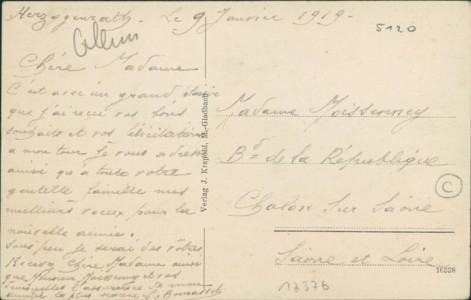 Herzogenrath. Le 9 Janvier 1919.
5120
Chère Madame
C'est avec un grand plaisir
que j'ai reçu vos bons
souhaits et vos félicitations
a mon tour je vous adresse
ainsi qu'a toute votre
gentille famille mes
meilleurs voeux pour la
nouvelle année.
Sous peu je serai des vôtres
Recevez Chère Madame ainsi
que Monsieur et vos
l'assurance de mon
amitié la plus sincère
Verlag J. Krapohl, M.-Gladbach.
Madame Moissonney
Bd de la République
Chalon sur Saône
Saône et Loire
C
16238
17376